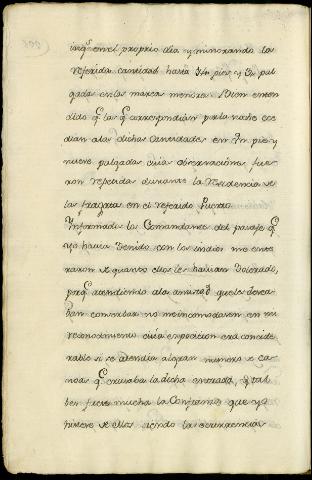 en el proprio dia y minorando la
referida cantidad hasta 14 pies y 3 pul
gadas en las mareas menores. Bien enten
dido q.e la q.e correspondian por la noche ece
dian a las dichas cantidades en Un pie y
nueve pulgadas cuia observacion fue
ron repetida durante la Residencia de
las fragatas en el referido Puerto.
Informado los Comandantes del parage q.e
yo havia tenido con los indios me ente
raron de quanto ellos les havian tolerado,
porq.e atendiendo a la amistad que le desea
ban conserbar no me incomodasen en mi
reconocimiento cuia exposicion era conside
rable si se atendia al gran numero de ca
noas q.e cruzaba la dicha entrada, y tal
bez fuese mucha la Confianza que yo
hiciese de ellos siendo las occurrencias